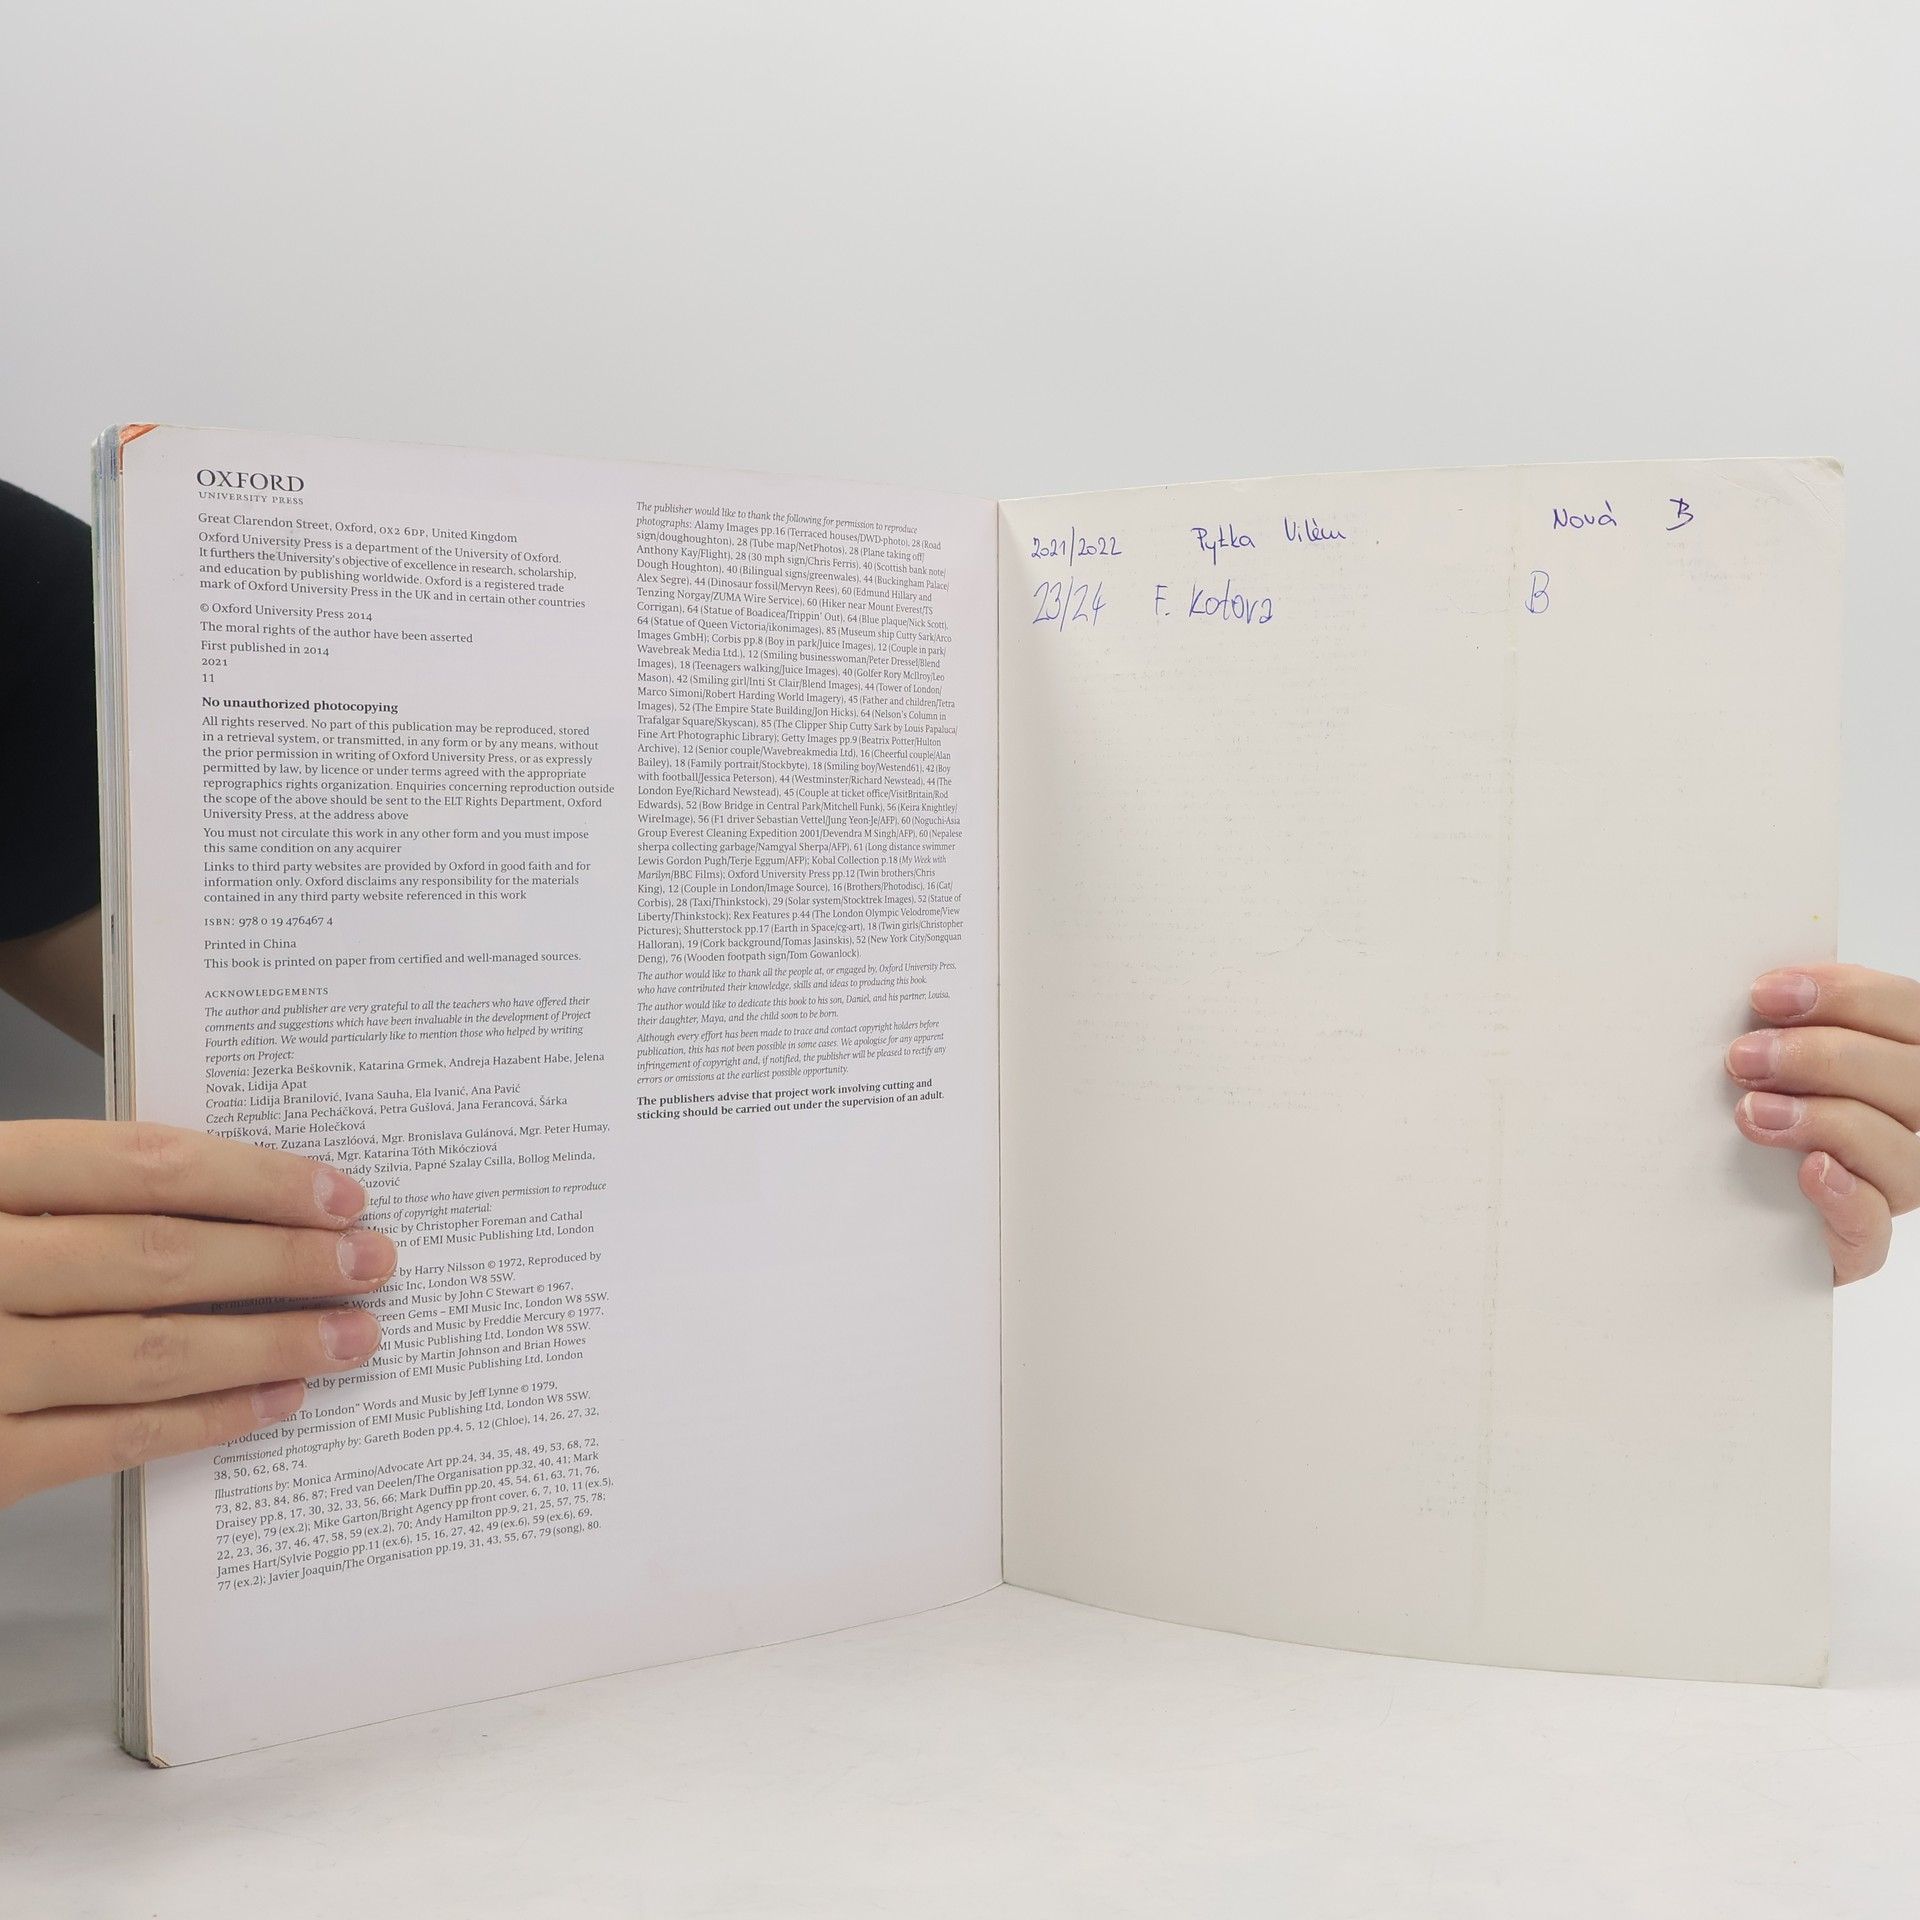 OXFORD
UNIVERSITY PRESS
Great Clarendon Street, Oxford, OX2 6DP, United Kingdom
Oxford University Press is a department of the University of Oxford.
It furthers the University's objective of excellence in research, scholarship,
and education by publishing worldwide. Oxford is a registered trade
mark of Oxford University Press in the UK and in certain other countries
© Oxford University Press 2014
The moral rights of the author have been asserted
First published in 2014
2021
11
No unauthorized photocopying
All rights reserved. No part of this publication may be reproduced, stored
in a retrieval system, or transmitted, in any form or by any means, without
the prior permission in writing of Oxford University Press, or as expressly
permitted by law, by licence or under terms agreed with the appropriate
reprographics rights organization. Enquiries concerning reproduction outside
the scope of the above should be sent to the ELT Rights Department, Oxford
University Press, at the address above
You must not circulate this work in any other form and you must impose
this same condition on any acquirer
Links to third party websites are provided by Oxford in good faith and for
information only. Oxford disclaims any responsibility for the materials
contained in any third party website referenced in this work
ISBN: 978 0 19 476467 4
Printed in China
This book is printed on paper from certified and well-managed sources.
ACKNOWLEDGEMENTS
The author and publisher are very grateful to all the teachers who have offered their
comments and suggestions which have been invaluable in the development of Project
Fourth edition. We would particularly like to mention those who helped by writing
reports on Project:
Slovenia: Jezerka Beškovnik, Katarina Grmek, Andreja Hazabent Habe, Jelena
Novak, Lidija Apat
Croatia: Lidija Branilović, Ivana Sauha, Ela Ivanić, Ana Pavić
Czech Republic: Jana Pecháčková, Petra Gušlová, Jana Ferancová, Šárka
Karpíšková, Marie Holečková
Mgr. Zuzana Laszlóová, Mgr. Bronislava Gulánová, Mgr. Peter Humay,
Mgr. Katarina Tóth Mikócziová
Szilvia, Papné Szalay Csilla, Bollog Melinda,
Ćuzović
to those who have given permission to reproduce
of copyright material:
Music by Christopher Foreman and Cathal
of EMI Music Publishing Ltd, London
by Harry Nilsson © 1972, Reproduced by
Music Inc, London W8 5SW.
Words and Music by John C Stewart © 1967,
Screen Gems – EMI Music Inc, London W8 5SW.
Words and Music by Freddie Mercury © 1977,
EMI Music Publishing Ltd, London W8 5SW.
Music by Martin Johnson and Brian Howes
by permission of EMI Music Publishing Ltd, London
To London" Words and Music by Jeff Lynne © 1979,
Reproduced by permission of EMI Music Publishing Ltd, London W8 5SW.
Commissioned photography by: Gareth Boden pp.4, 5, 12 (Chloe), 14, 26, 27, 32,
38, 50, 62, 68, 74.
Illustrations by: Monica Armino/Advocate Art pp.24, 34, 35, 48, 49, 53, 68, 72,
73, 82, 83, 84, 86, 87; Fred van Deelen/The Organisation pp.32, 40, 41; Mark
Draisey pp.8, 17, 30, 32, 33, 56, 66; Mark Duffin pp.20, 45, 54, 61, 63, 71, 76,
77 (eye), 79 (ex.2); Mike Garton/Bright Agency pp front cover, 6, 7, 10, 11 (ex.5),
22, 23, 36, 37, 46, 47, 58, 59 (ex.2), 70; Andy Hamilton pp.9, 21, 25, 57, 75, 78;
James Hart/Sylvie Poggio pp.11 (ex.6), 15, 16, 27, 42, 49 (ex.6), 59 (ex.6), 69,
77 (ex.2); Javier Joaquin/The Organisation pp.19, 31, 43, 55, 67, 79 (song), 80.
The publisher would like to thank the following for permission to reproduce
photographs: Alamy Images pp.16 (Terraced houses/DWD-photo), 28 (Road
sign/doughoughton), 28 (Tube map/NetPhotos), 28 (Plane taking off/
Anthony Kay/Flight), 28 (30 mph sign/Chris Ferris), 40 (Scottish bank note/
Dough Houghton), 40 (Bilingual signs/greenwales), 44 (Buckingham Palace/
Alex Segre), 44 (Dinosaur fossil/Mervyn Rees), 60 (Edmund Hillary and
Tenzing Norgay/ZUMA Wire Service), 60 (Hiker near Mount Everest/TS
Corrigan), 64 (Statue of Boadicea/Trippin' Out), 64 (Blue plaque/Nick Scott),
64 (Statue of Queen Victoria/ikonimages), 85 (Museum ship Cutty Sark/Arco
Images GmbH); Corbis pp.8 (Boy in park/Juice Images), 12 (Couple in park/
Wavebreak Media Ltd.), 12 (Smiling businesswoman/Peter Dressel/Blend
Images), 18 (Teenagers walking/Juice Images), 40 (Golfer Rory McIlroy/Leo
Mason), 42 (Smiling girl/Inti St Clair/Blend Images), 44 (Tower of London/
Marco Simoni/Robert Harding World Imagery), 45 (Father and children/Tetra
Images), 52 (The Empire State Building/Jon Hicks), 64 (Nelson's Column in
Trafalgar Square/Skyscan), 85 (The Clipper Ship Cutty Sark by Louis Papaluca/
Fine Art Photographic Library); Getty Images pp.9 (Beatrix Potter/Hulton
Archive), 12 (Senior couple/Wavebreakmedia Ltd), 16 (Cheerful couple/Alan
Bailey), 18 (Family portrait/Stockbyte), 18 (Smiling boy/Westend61), 42 (Boy
with football/Jessica Peterson), 44 (Westminster/Richard Newstead), 44 (The
London Eye/Richard Newstead), 45 (Couple at ticket office/VisitBritain/Rod
Edwards), 52 (Bow Bridge in Central Park/Mitchell Funk), 56 (Keira Knightley/
WireImage), 56 (F1 driver Sebastian Vettel/Jung Yeon-Je/AFP), 60 (Noguchi-Asia
Group Everest Cleaning Expedition 2001/Devendra M Singh/AFP), 60 (Nepalese
sherpa collecting garbage/Namgyal Sherpa/AFP), 61 (Long distance swimmer
Lewis Gordon Pugh/Terje Eggum/AFP); Kobal Collection p.18 (My Week with
Marilyn/BBC Films); Oxford University Press pp.12 (Twin brothers/Chris
King), 12 (Couple in London/Image Source), 16 (Brothers/Photodisc), 16 (Cat/
Corbis), 28 (Taxi/Thinkstock), 29 (Solar system/Stocktrek Images), 52 (Statue of
Liberty/Thinkstock); Rex Features p.44 (The London Olympic Velodrome/View
Pictures); Shutterstock pp.17 (Earth in Space/cg-art), 18 (Twin girls/Christopher
Halloran), 19 (Cork background/Tomas Jasinskis), 52 (New York City/Songquan
Deng), 76 (Wooden footpath sign/Tom Gowanlock).
The author would like to thank all the people at, or engaged by, Oxford University Press,
who have contributed their knowledge, skills and ideas to producing this book.
The author would like to dedicate this book to his son, Daniel, and his partner, Louisa,
their daughter, Maya, and the child soon to be born.
Although every effort has been made to trace and contact copyright holders before
publication, this has not been possible in some cases. We apologise for any apparent
infringement of copyright and, if notified, the publisher will be pleased to rectify any
errors or omissions at the earliest possible opportunity.
The publishers advise that project work involving cutting and
sticking should be carried out under the supervision of an adult.
2021/2022 Pytka Vilém Nová B
23/24 F. Kotova B